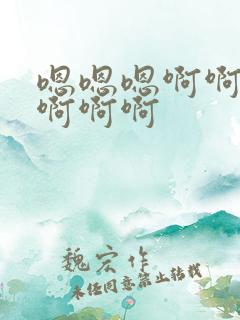 嗯嗯嗯啊啊
啊啊啊
魏宏作
未经同意禁止转载